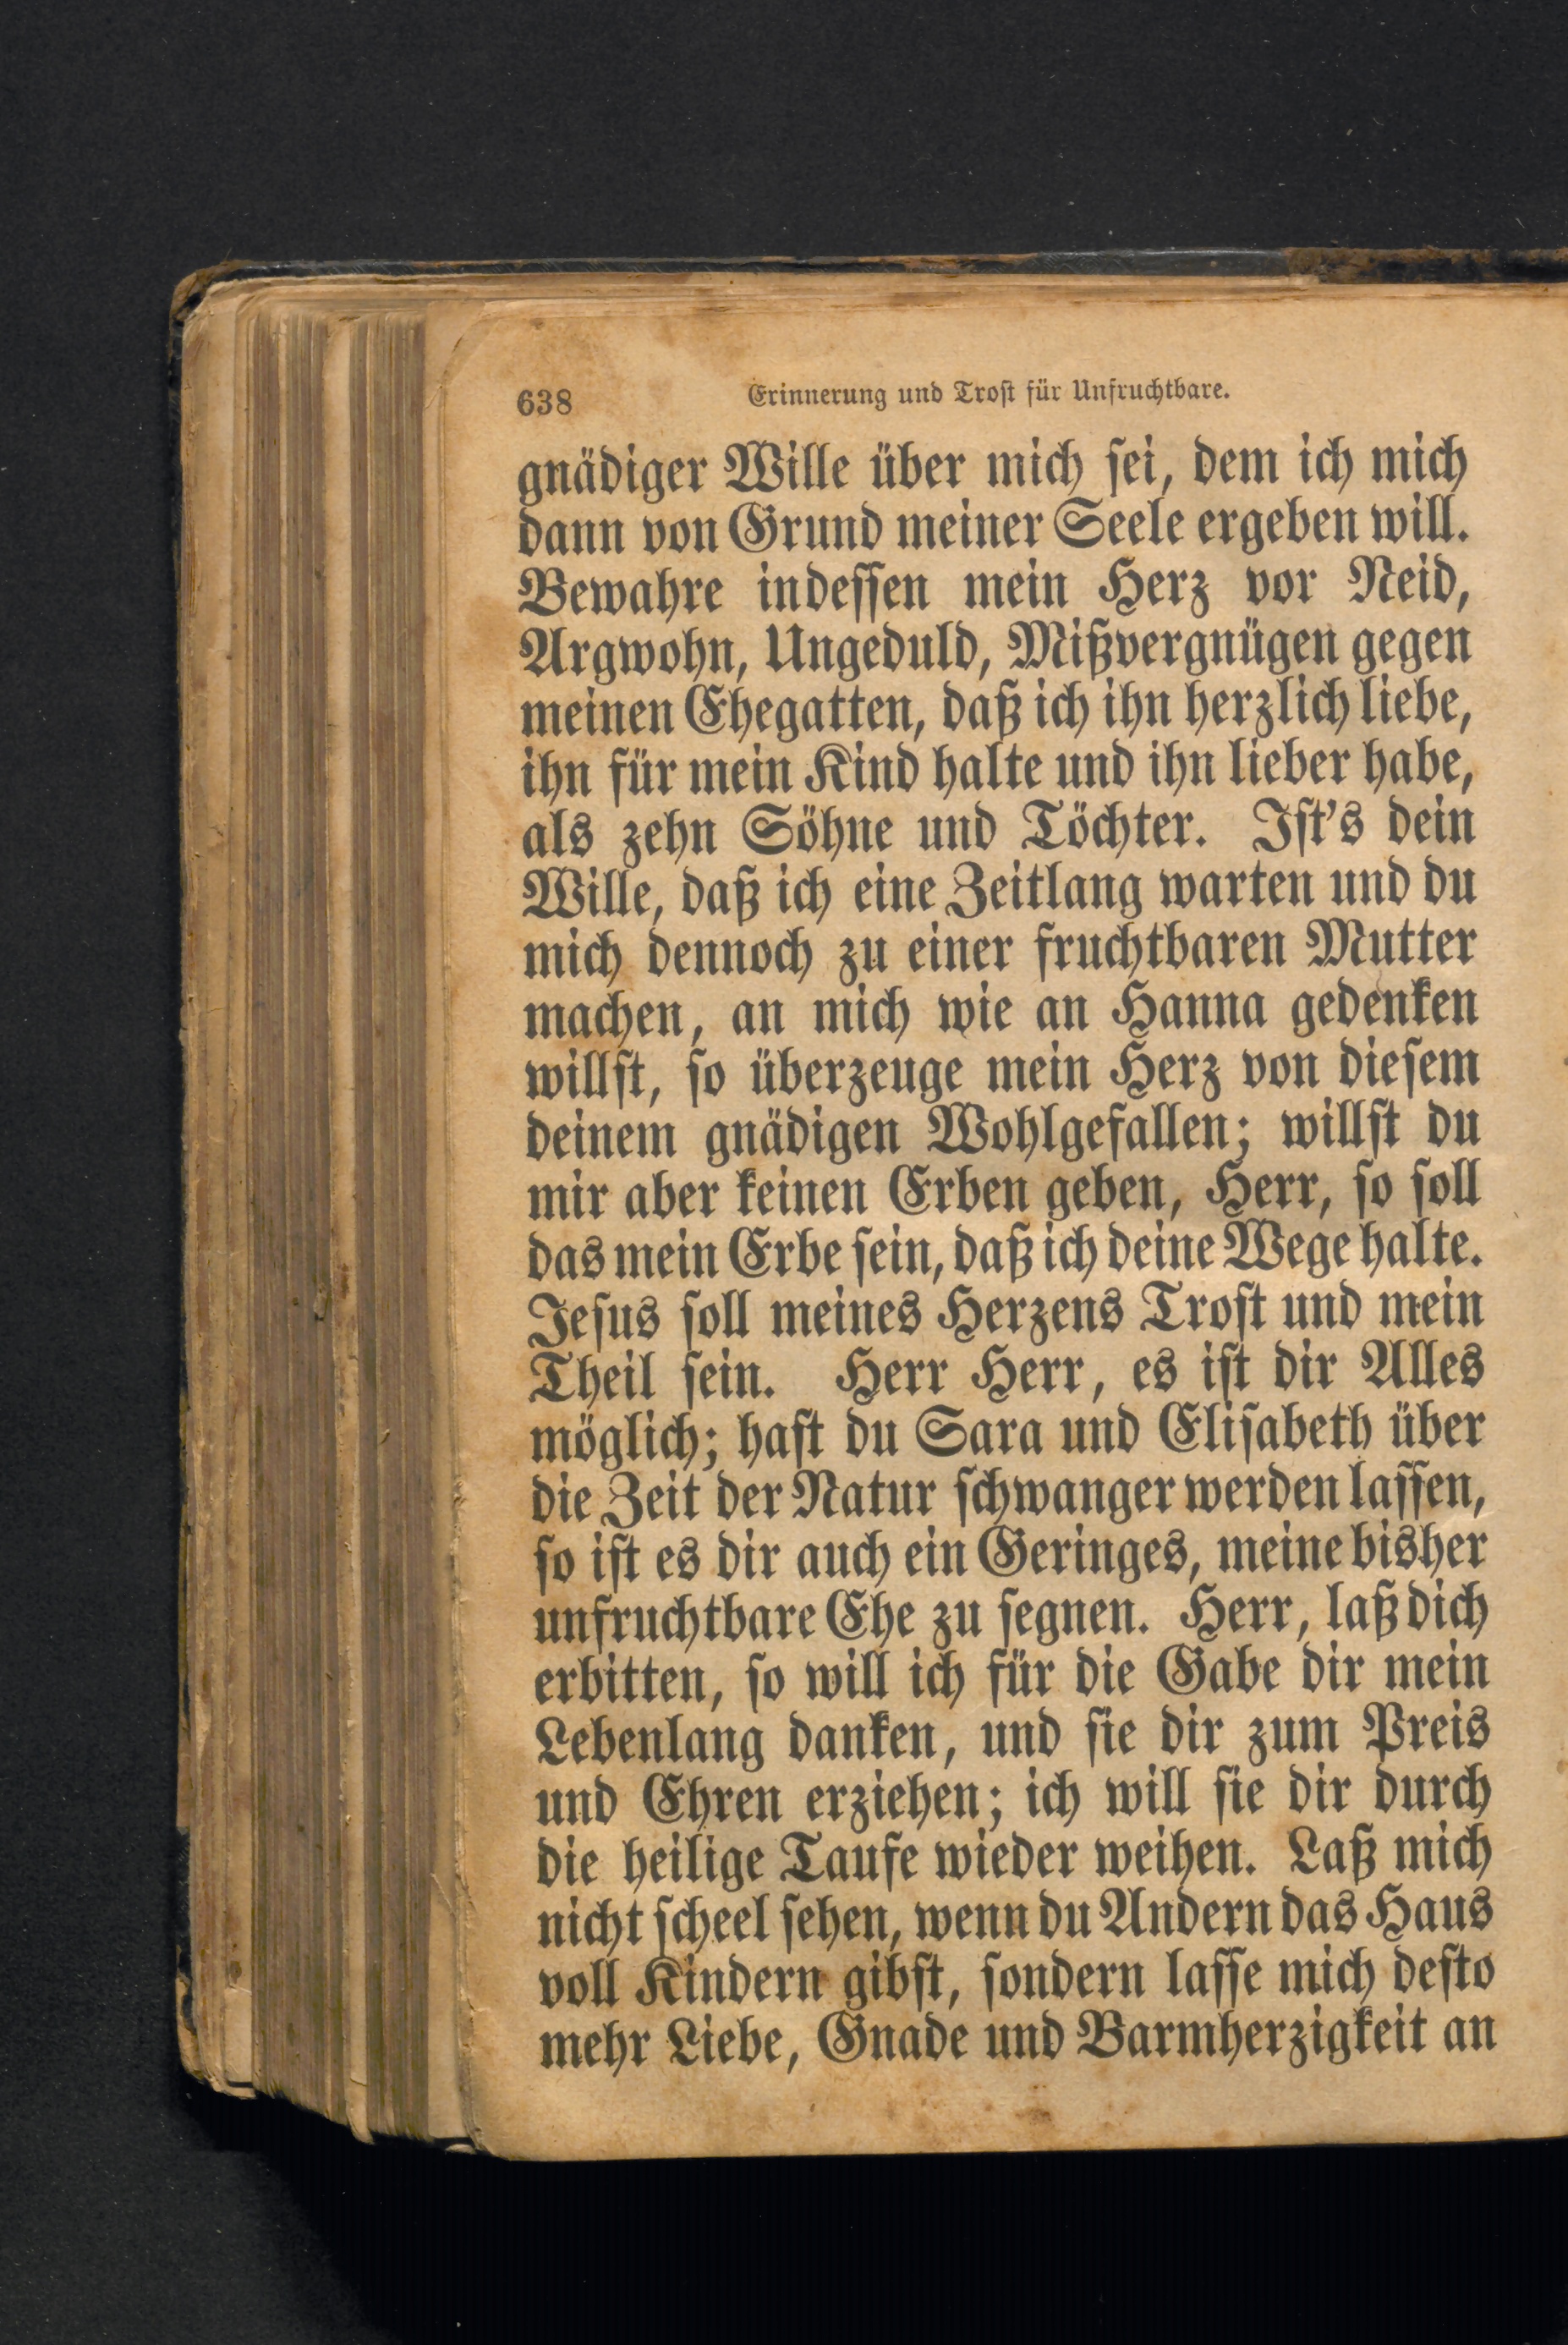 638 Erinnerung und Trost für Unfruchtbare.
gnädiger Wille über mich sei, dem ich mich
dann von Grund meiner Seele ergeben will.
Bewahre indessen mein Herz vor Neid,
Argwohn, Ungeduld, Mißvergnügen gegen
meinen Ehegatten, daß ich ihn herzlich liebe,
ihn für mein Kind halte und ihn lieber habe,
als zehn Söhne und Töchter. Ist's dein
Wille, daß ich eine Zeitlang warten und du
mich dennoch zu einer fruchtbaren Mutter
machen, an mich wie an Hanna gedenken
willst, so überzeuge mein Herz von diesem
deinem gnädigen Wohlgefallen; willst du
mir aber keinen Erben geben, Herr, so soll
das mein Erbe sein, daß ich deine Wege halte.
Jesus soll meines Herzens Trost und mein
Theil sein. Herr Herr, es ist dir Alles
möglich; hast du Sara und Elisabeth über
die Zeit der Natur schwanger werden lassen,
so ist es dir auch ein Geringes, meine bisher
unfruchtbare Ehe zu segnen. Herr, laß dich
erbitten, so will ich für die Gabe dir mein
Lebenlang danken, und sie dir zum Preis
und Ehren erziehen; ich will sie dir durch
die heilige Taufe wieder weihen. Laß mich
nicht scheel sehen, wenn du Andern das Haus
voll Kindern gibst, sondern lasse mich desto
mehr Liebe, Gnade und Barmherzigkeit an